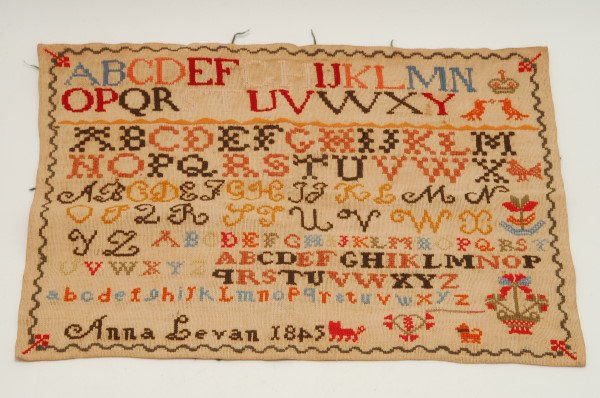 ABCDEFGHIJKLMN
OPQR UVWXY
ABCDEFGHIJKLM
NOPQRSTUVWX
ABCDEFGHIJKLMN
OPQRSTUVWX
YZ ABCDEFGHIJKLMNOPQRST
UVWXYZ ABCDEFGHIKLMNOP
QRSTUVWXYZ
abcdefghijklmnopqrstuvwxyz
Anna Levan 1845